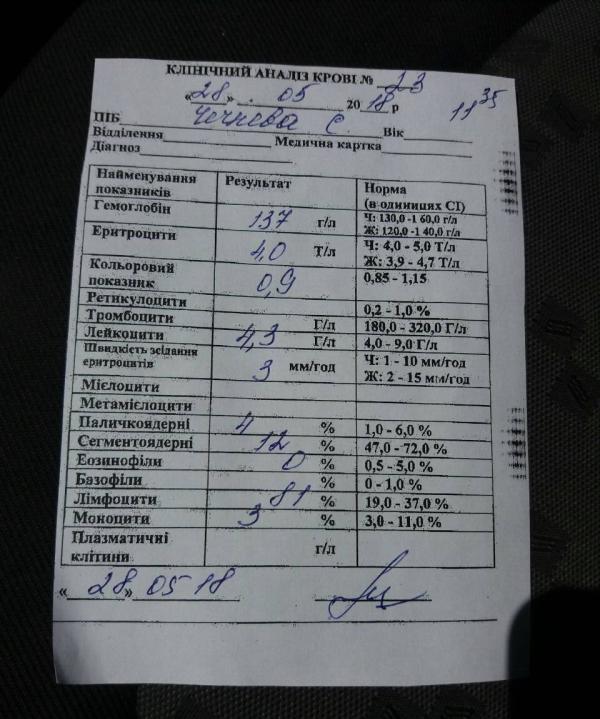 КЛІНІЧНИЙ АНАЛІЗ КРОВІ № 23
«28» . 05 2018 р 11 35
ПІБ С. Вік
Відділення Медична картка
Діагноз
Найменування показників Результат Норма (в одиницях СІ)
Гемоглобін 137 г/л Ч: 130,0 -1 60,0 г/л
Ж: 120,0 -1 40,0 г/л
Еритроцити 4,0 Т/л Ч: 4,0 - 5,0 Т/л
Ж: 3,9 - 4,7 Т/л
Кольоровий показник 0,9 0,85 - 1,15
Ретикулоцити 0,2 - 1,0 %
Тромбоцити Г/л 180,0 - 320,0 Г/л
Лейкоцити 4,3 Г/л 4,0 - 9,0 Г/л
Швидкість зсідання еритроцитів 3 мм/год Ч: 1 - 10 мм/год
Ж: 2 - 15 мм/год
Мієлоцити
Метамієлоцити
Паличкоядерні 4 % 1,0 - 6,0 %
Сегментоядерні 12 % 47,0 - 72,0 %
Еозинофіли 0 % 0,5 - 5,0 %
Базофіли % 0 - 1,0 %
Лімфоцити 81 % 19,0 - 37,0 %
Моноцити 3 % 3,0 - 11,0 %
Плазматичні клітини г/л
«28» 05 18